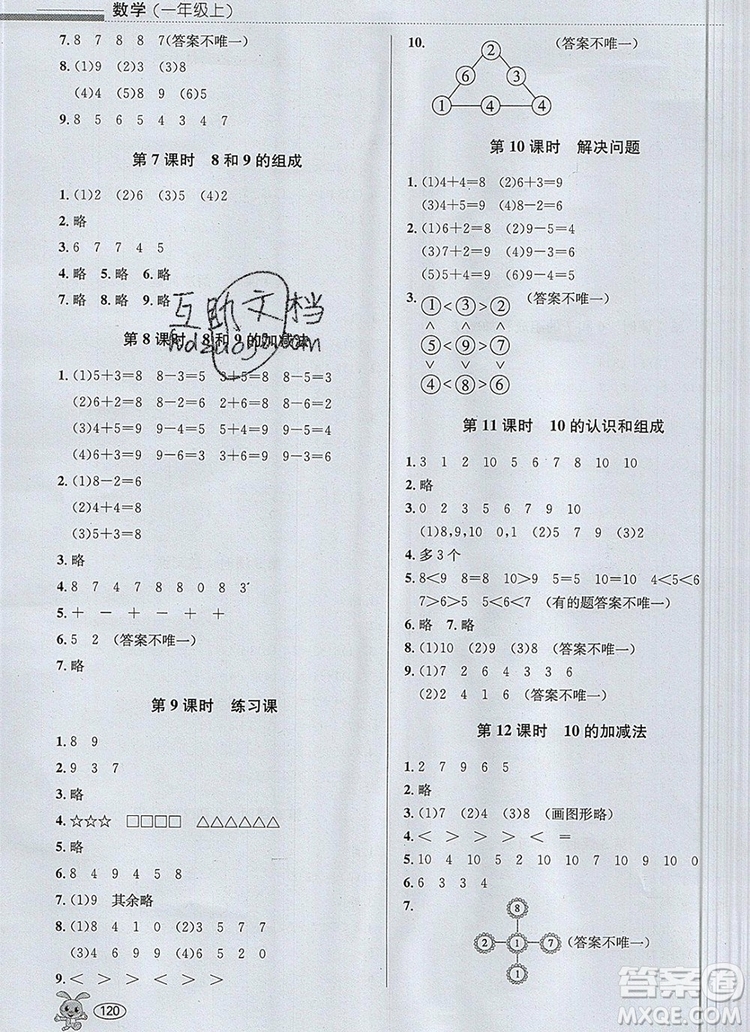 数学(一年级上)
7. 8 7 8 8 7(答案不唯一)
8. (1)9 (2)3 (3)8
(4)4 (5)8 9 (6)5
9. 8 5 6 5 4 3 4 7
第 7 课时 8 和 9 的组成
1. (1)2 (2)6 (3)5 (4)2
2. 略
3. 6 7 7 4 5
4. 略 5. 略 6. 略
7. 略 8. 略 9. 略
互助文档
第 8 课时 8 和 9 的加减法
1. (1)5+3=8 8-3=5 3+5=8 8-5=3
(2)6+2=8 8-2=6 2+6=8 8-6=2
(3)4+5=9 9-5=4 5+4=9 9-4=5
(4)6+3=9 9-3=6 3+6=9 9-6=3
2. (1)8-2=6
(2)4+4=8
(3)5+3=8
3. 略
4. 8 7 4 7 8 8 0 8 3
5. + - + - + +
6. 5 2 (答案不唯一)
7. 略
第 9 课时 练习课
1. 8 9
2. 9 3 7
3. 略
4. ☆☆☆ □□□□ △△△△△△
5. 略
6. 8 4 9 4 5 8
7. (1)9 其余略
8. (1)9 8 4 1 (2)3 5 7 7
(3)4 6 9 4 (4)6 5 2 0
9. < > > < > >
120
10. (答案不唯一)
2
6 3
1 4 4
第 10 课时 解决问题
1. (1)4+4=8 (2)6+3=9
(3)4+5=9 (4)8-2=6
2. (1)6+2=8 (2)9-5=4
(3)7+2=9 (4)9-4=5
(5)4+4=8 (6)8-6=2
3. ①<③>② (答案不唯一)
∧ ∧ ∨
⑤<⑨>⑦
∨ ∨ ∨
④<⑧>⑥
第 11 课时 10 的认识和组成
1. 3 1 2 10 5 10 9 10
2. 略
3. 0 2 3 5 6 7 9 10
(1)8,9,10 0,1 (2)5 7 9 (3)2
4. 多 3 个
5. 8<9 8=8 10>9 10=10 4<5<6
7>6>5 5<6<7 (有的题答案不唯一)
6. 略 7. 略
8. (1)10 (2)9 (3)8 10
9. (1)7 2 6 4 3 3 6
(2)2 4 1 6 (答案不唯一)
第 12 课时 10 的加减法
1. 2 7 9 6 5
2. 略
3. (1)7 (2)4 (3)8 (画图形略)
4. < > > > < =
5. 10 4 10 5 2 10 0 10
6. 6 3 3 4 (答案不唯一)
7. 8
2 1 7 (答案不唯一)
1
答案圈
MXQE.COM